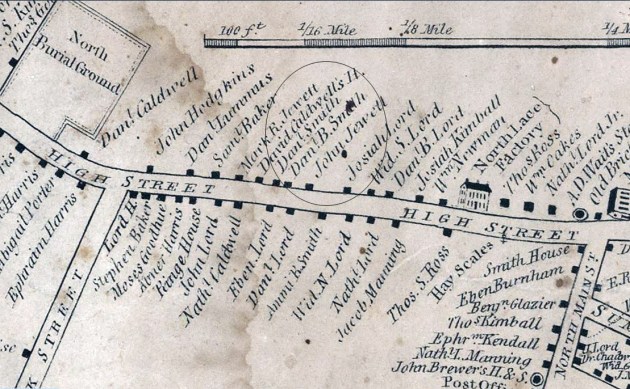 100 ft
1/16 Mile
1/8 Mile
North
Burial Ground
Danl Caldwell
John Hodgkins
Saml Baker
Mark R. Jewett
David Caldwell's H.
Danl Smith
Danl B. Smith
John Jewett
Josiah Lord
Wid. S. Lord
Danl B. Lord
Josiah Kimball
Wm Newman
North Lace
Factory
Thos Ross
Wm Oakes
Nathl Lord Jr.
HIGH STREET
HIGH STREET
Harris
Abigail Porter
Ephraim Harris
Stephen Baker
Moses Goodhue
Abner Harris
John Lord
Nathl Caldwell
Eben Lord
Danl Lord
Ammi R. Smith
Wid. N. Lord
Nathl Lord
Jacob Manning
Thos. S. Ross
Hay Scales
Smith House
Eben Burnham
Benjn Glazier
Thos Kimball
Ephrm Kendall
Nathl L. Manning
John Brewers H. & S.
Post Off.
NORTH MAIN ST
K STREET